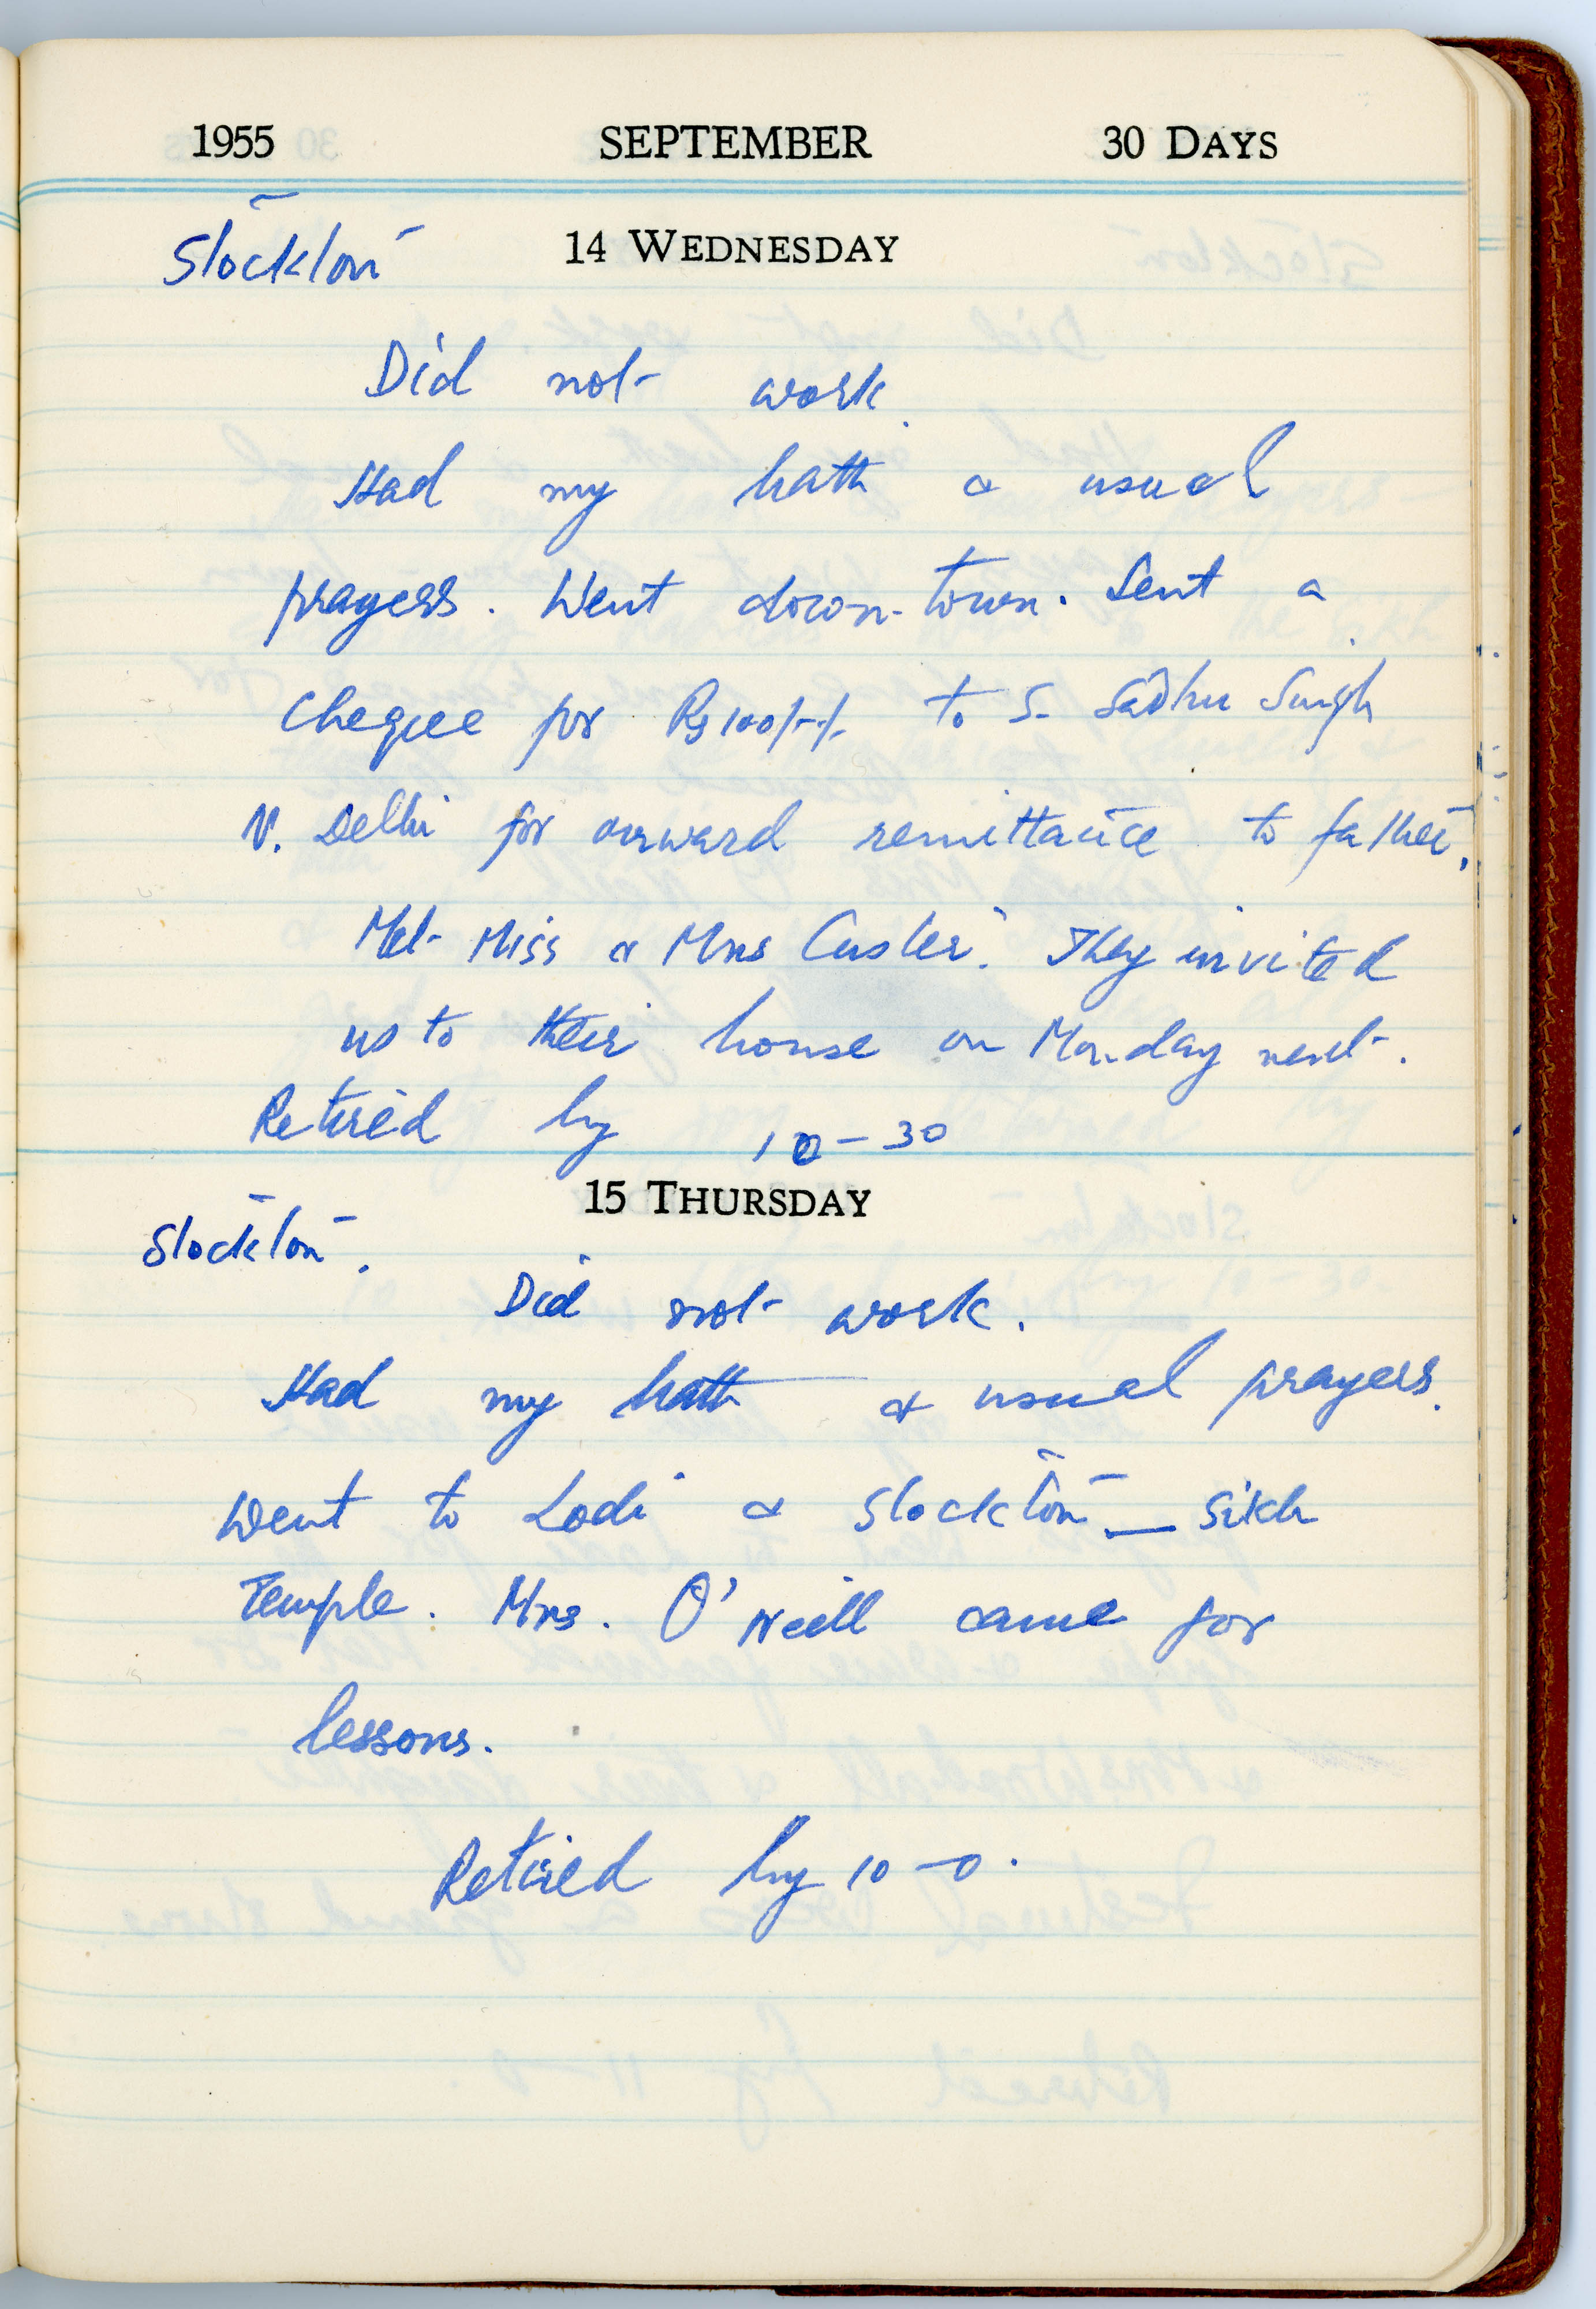 1955 SEPTEMBER 30 DAYS
Stockton 14 WEDNESDAY
Did not work.
Had my bath & usual
prayers. Went down-town. Sent a
cheque for Rs 100/-/- to S. Sadhu Singh
N. Delhi for onward remittance to father.
Met Miss & Mrs Custer. They invited
us to their house on Monday next.
Retired by 10-30
15 THURSDAY
Stockton.
Did not work.
Had my bath & usual prayers.
Went to Lodi & Stockton — Sikh
Temple. Mrs. O'Neill came for
lessons.
Retired by 10-0.